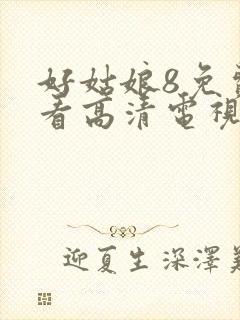 好姑娘8免
看高清電視
迎夏生深澤